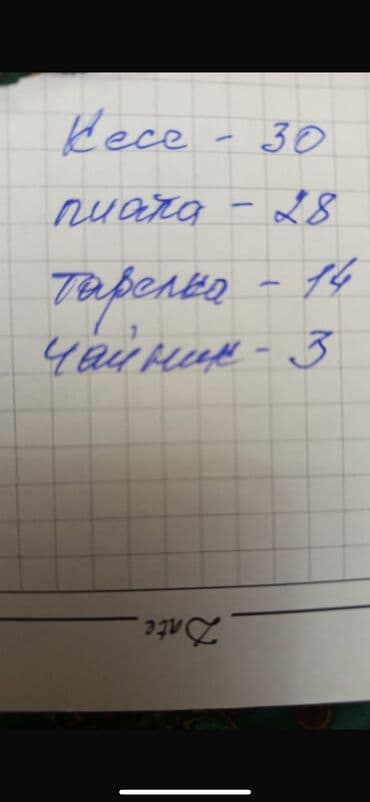 Кесе - 30
пиала - 28
Тарелка - 14
Чайник - 3
Date